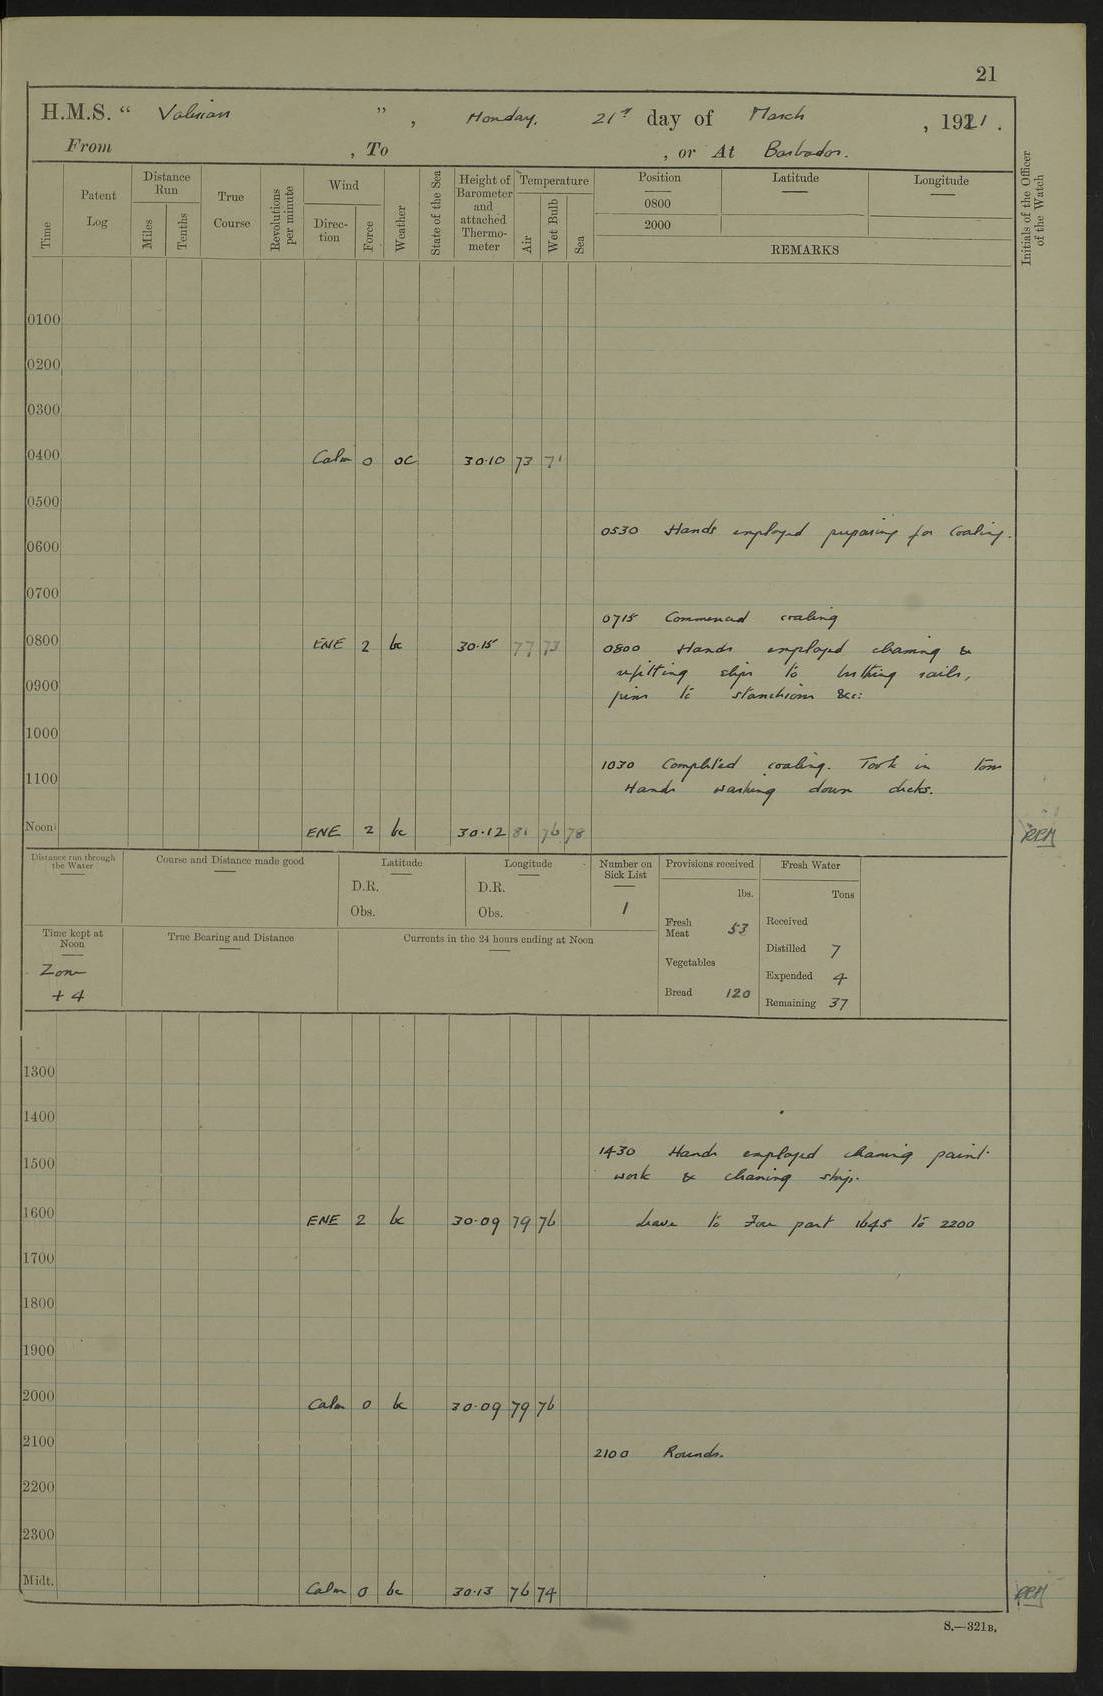 21
H.M.S. “ Valerian ” , Monday, 21st day of March , 1921 .
From , To , or At Barbados.
Time
Patent Log
Distance Run
Miles
Tenths
True Course
Revolutions per minute
Wind
Direction
Force
Weather
State of the Sea
Height of Barometer and attached Thermometer
Temperature
Air
Wet Bulb
Sea
Position
0800
2000
Latitude
Longitude
REMARKS
Initials of the Officer of the Watch
0100
0200
0300
0400 Calm 0 oc 30·10 73 71
0500
0530 Hands employed preparing for Coaling.
0600
0700
0715 Commenced coaling
0800 ENE 2 bc 30·15 77 73 0800 Hands employed cleaning &
refitting slips to berthing rails,
0900
pins to stanchions &c:
1000
1030 Completed coaling. Took in tons
1100
Hands washing down decks.
Noon ENE 2 bc 30·12 81 76 78 RRM
Distance run through the Water
Course and Distance made good
Latitude
D.R.
Obs.
Longitude
D.R.
Obs.
Number on Sick List
1
Provisions received
lbs.
Fresh Meat 53
Vegetables
Bread 120
Fresh Water
Tons
Received
Distilled 7
Expended 4
Remaining 37
Time kept at Noon
Zone
+ 4
True Bearing and Distance
Currents in the 24 hours ending at Noon
1300
1400
1430 Hands employed cleaning paint-
1500
work & cleaning ship.
1600 ENE 2 bc 30·09 79 76 Leave to Four part 1645 to 2200
1700
1800
1900
2000 Calm 0 bc 30·09 79 76
2100
2100 Rounds.
2200
2300
Midt. Calm 0 bc 30·13 76 74 RRM
S.—321B.